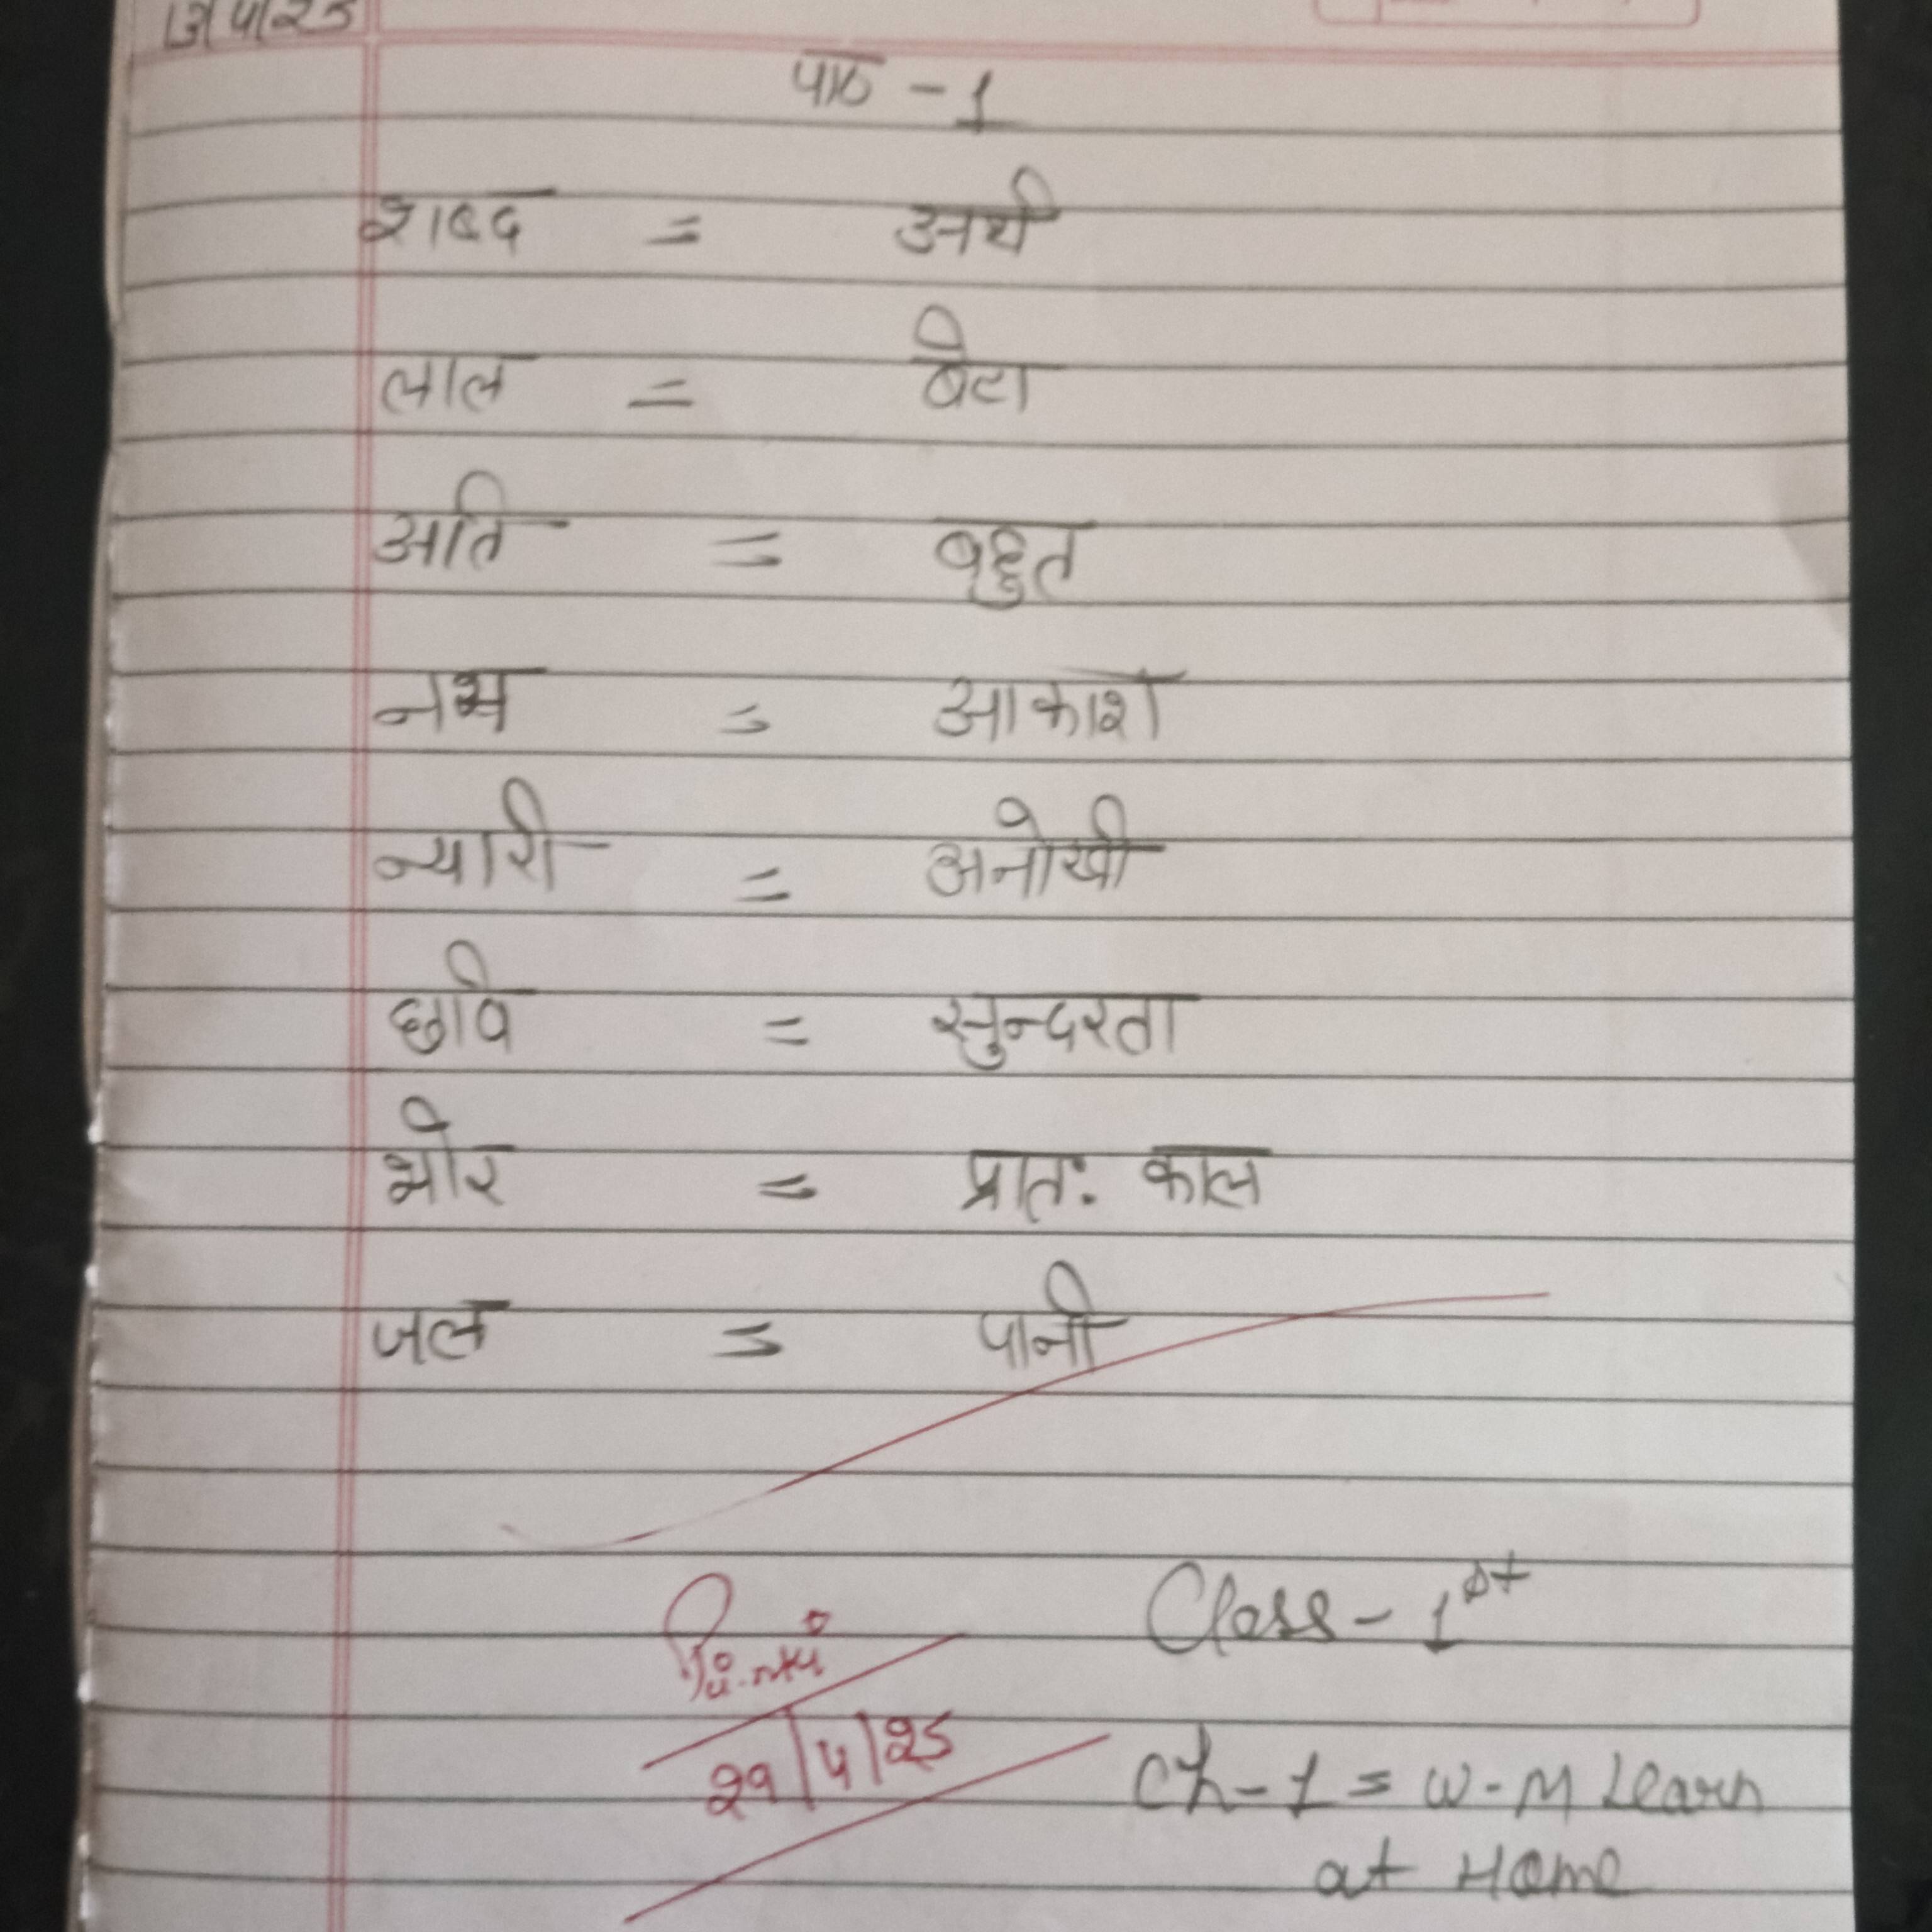 पाठ - 1
शब्द = अर्थ
लाल = बेटा
अति = बहुत
नभ = आकाश
न्यारी = अनोखी
छवि = सुन्दरता
भोर = प्रातः काल
जल = पानी
Class - 1st
29/4/25
Ch-1 = W-M Learn
at Home